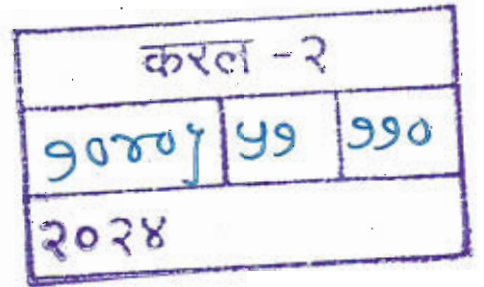 करल - २
१०४०५ ५१ ११०
२०२४